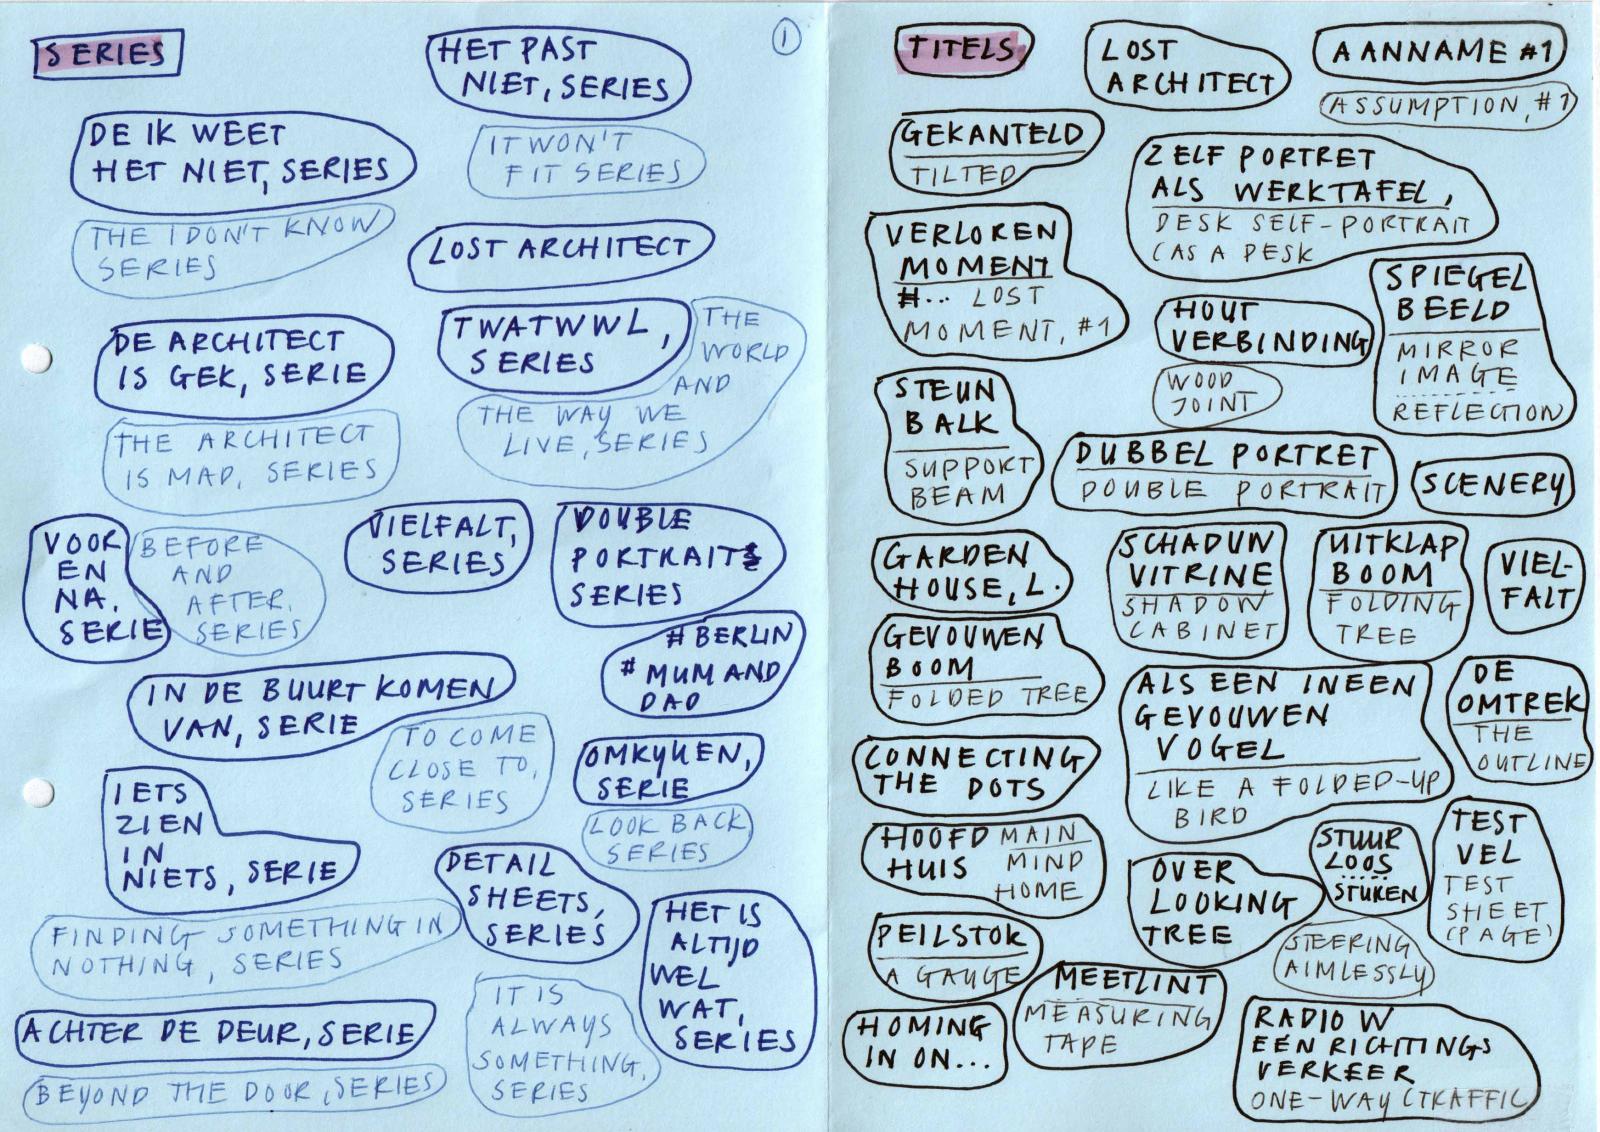 SERIES
1
HET PAST
NIET, SERIES
IT WON'T
FIT SERIES
DE IK WEET
HET NIET, SERIES
THE I DON'T KNOW
SERIES
LOST ARCHITECT
DE ARCHITECT
IS GEK, SERIE
THE ARCHITECT
IS MAD, SERIES
TWATWWL,
SERIES
THE
WORLD
AND
THE WAY WE
LIVE, SERIES
VOOR
EN
NA.
SERIE
BEFORE
AND
AFTER.
SERIES
VIELFALT,
SERIES
DOUBLE
PORTRAITS
SERIES
# BERLIN
# MUM AND
DAD
IN DE BUURT KOMEN
VAN, SERIE
TO COME
CLOSE TO,
SERIES
OMKYKEN,
SERIE
LOOK BACK
SERIES
IETS
ZIEN
IN
NIETS, SERIE
FINDING SOMETHING IN
NOTHING, SERIES
DETAIL
SHEETS,
SERIES
HET IS
ALTIJD
WEL
WAT,
SERIES
IT IS
ALWAYS
SOMETHING,
SERIES
ACHTER DE DEUR, SERIE
BEYOND THE DOOR, SERIES
TITELS
LOST
ARCHITECT
AANNAME #1
ASSUMPTION, #1
GEKANTELD
TILTED
ZELF PORTRET
ALS WERKTAFEL,
DESK SELF-PORTRAIT
(AS A DESK
VERLOREN
MOMENT
#... LOST
MOMENT, #1
HOUT
VERBINDING
WOOD
JOINT
SPIEGEL
BEELD
MIRROR
IMAGE
REFLECTION
STEUN
BALK
SUPPORT
BEAM
DUBBEL PORTRET
DOUBLE PORTRAIT
SCENERY
GARDEN
HOUSE, L.
SCHADUW
VITRINE
SHADOW
CABINET
UITKLAP
BOOM
FOLDING
TREE
VIEL-
FALT
GEVOUWEN
BOOM
FOLDED TREE
ALS EEN INEEN
GEVOUWEN
VOGEL
LIKE A FOLDED-UP
BIRD
DE
OMTREK
THE
OUTLINE
CONNECTING
THE DOTS
HOOFD
HUIS
MAIN
MIND
HOME
OVER
LOOKING
TREE
STUUR
LOOS
STUKEN
STEERING
AIMLESSLY
TEST
VEL
TEST
SHEET
(PAGE)
PEILSTOK
A GAUGE
MEETLINT
MEASURING
TAPE
HOMING
IN ON...
RADIO W
EEN RICHTINGS
VERKEER
ONE-WAY (TRAFFIC